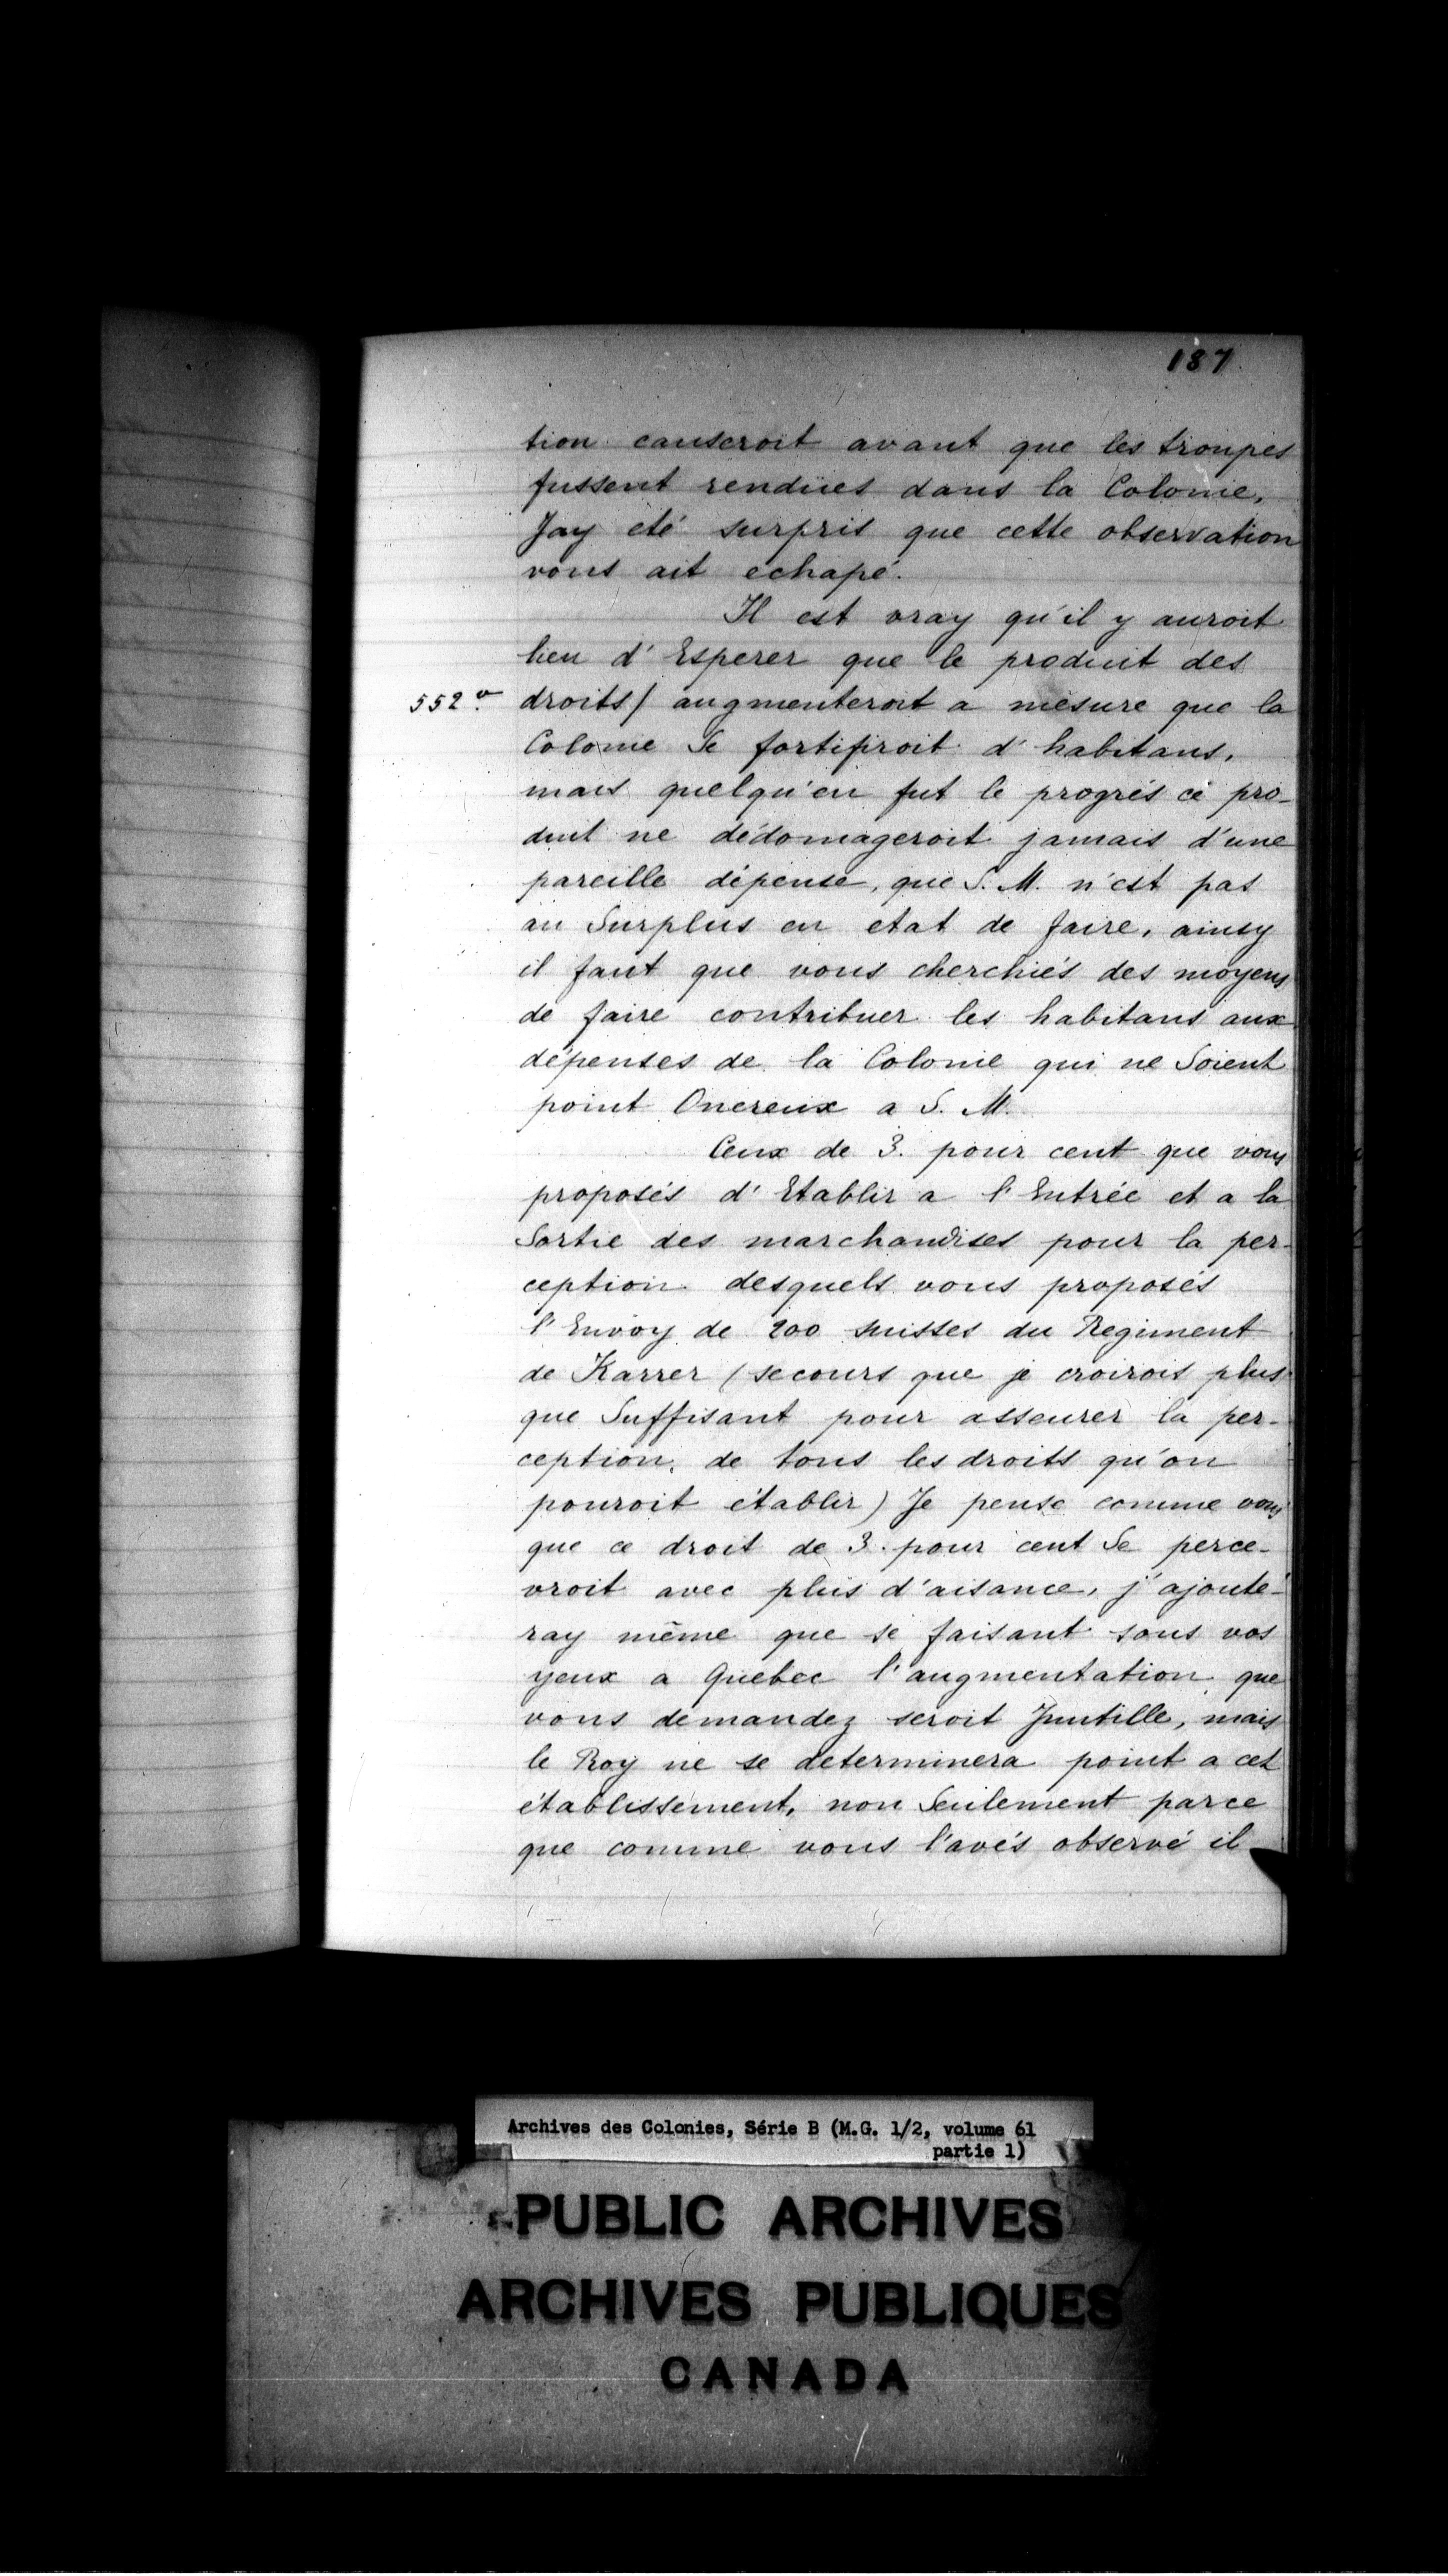 187
tion causeroit avant que les troupes
fussent rendües dans la Colonie,
Jay eté surpris que cette observation
vous ait echapé.
Il est vray qu'il y auroit
lieu d'Esperer que le produit des
552 v° droits/ augmenteroit a mesure que la
Colonie Se fortifiroit d'habitans,
mais quelqu'en fut le progrés ce pro-
duit ne dédomageroit jamais d'une
pareille dépense, que S. M. n'est pas
au Surplus en etat de faire, ainsy
il faut que vous cherchiés des moyens
de faire contribuer les habitans aux
dépenses de la Colonie qui ne Soient
point Onereux a S. M.
Ceux de 3. pour cent que vous
proposés d'Etablir a l'Entrée et a la
Sortie des marchandises pour la per-
ception desquels vous proposés
l'Envoy de 200 suisses du Regiment
de Karrer (secours que je croirois plus
que Suffisant pour asseurer la per-
ception, de tous les droits qu'on
pouroit établir) Je pense comme vous
que ce droit de 3. pour cent Se perce-
vroit avec plus d'aisance, j'ajoute-
ray même que se faisant sous vos
yeux a Quebec l'augmentation que
vous demandez seroit Jnutille, mais
le Roy ne se determinera point a cet
établissement, non Seulement parce
que comme vous l'avés observé il
Archives des Colonies, Série B (M.G. 1/2, volume 61
partie 1)
PUBLIC ARCHIVES
ARCHIVES PUBLIQUES
CANADA